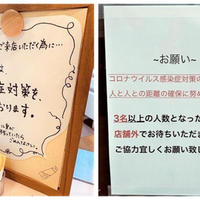 ご来店いただく為に…
は
症対策を、
おります。
~お願い~
コロナウイルス感染症対策の
人と人との距離の確保に努め
3名以上の人数となった
店舗外でお待ちいただき
ご協力宜しくお願い致し